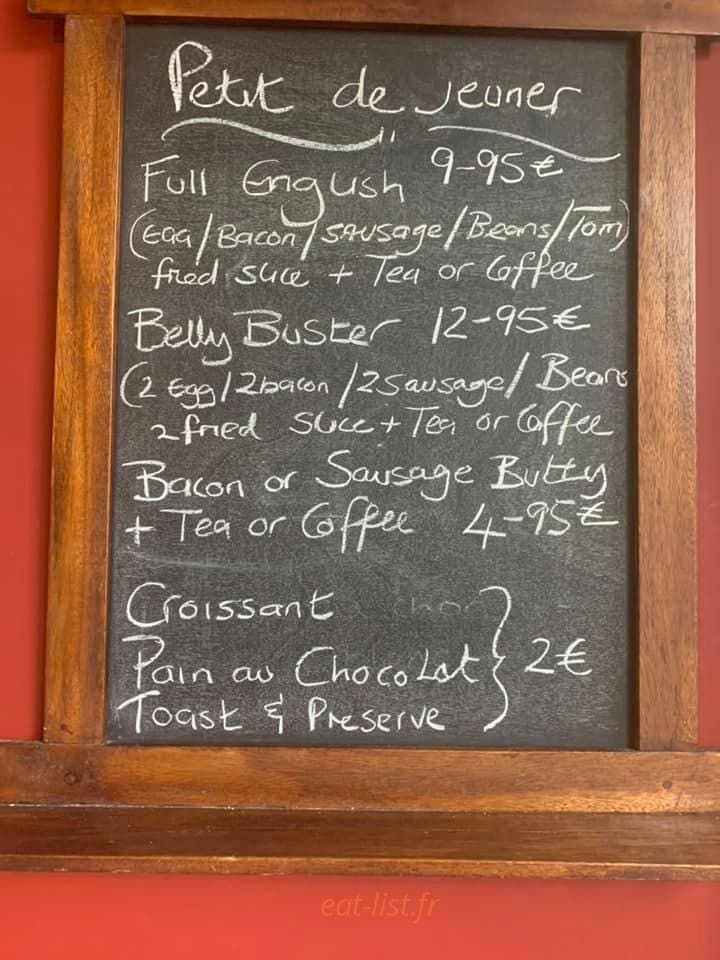 Petit de jeuner
Full English 9-95€
(Egg/Bacon/Sausage/Beans/Tom)
fried slice + Tea or Coffee
Belly Buster 12-95€
(2 Egg/2bacon/2Sausage/Beans
2 fried slice + Tea or Coffee
Bacon or Sausage Butty
+ Tea or Coffee 4-95€
Croissant
Pain au Chocolat } 2€
Toast & Preserve
eat-list.fr